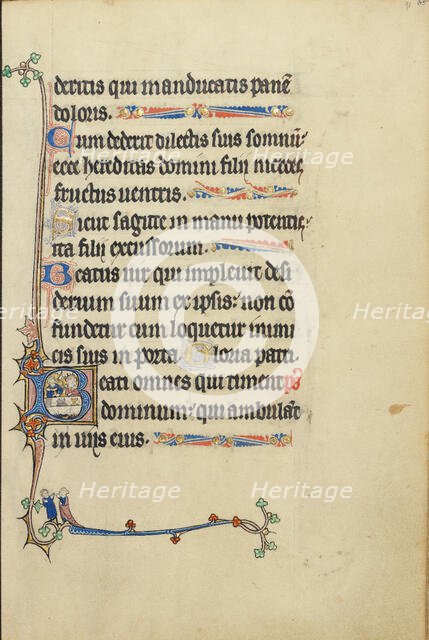 deritis qui manducatis panē
doloris.
Cum dederit dilectis suis somnū:
ecce hereditas domini filii merces
fructus ventris.
Sicut sagitte in manu potentis:
ita filii excussorum.
Beatus uir qui impleuit desi
derium suum ex ipsis: non cō
fundetur cum loquetur inimi
cis suis in porta. Gloria patri
Beati omnes qui timent ps
dominum: qui ambulāt
in uiis eius.
Heritage Heritage
Heritage Heritage
Heritage Heritage